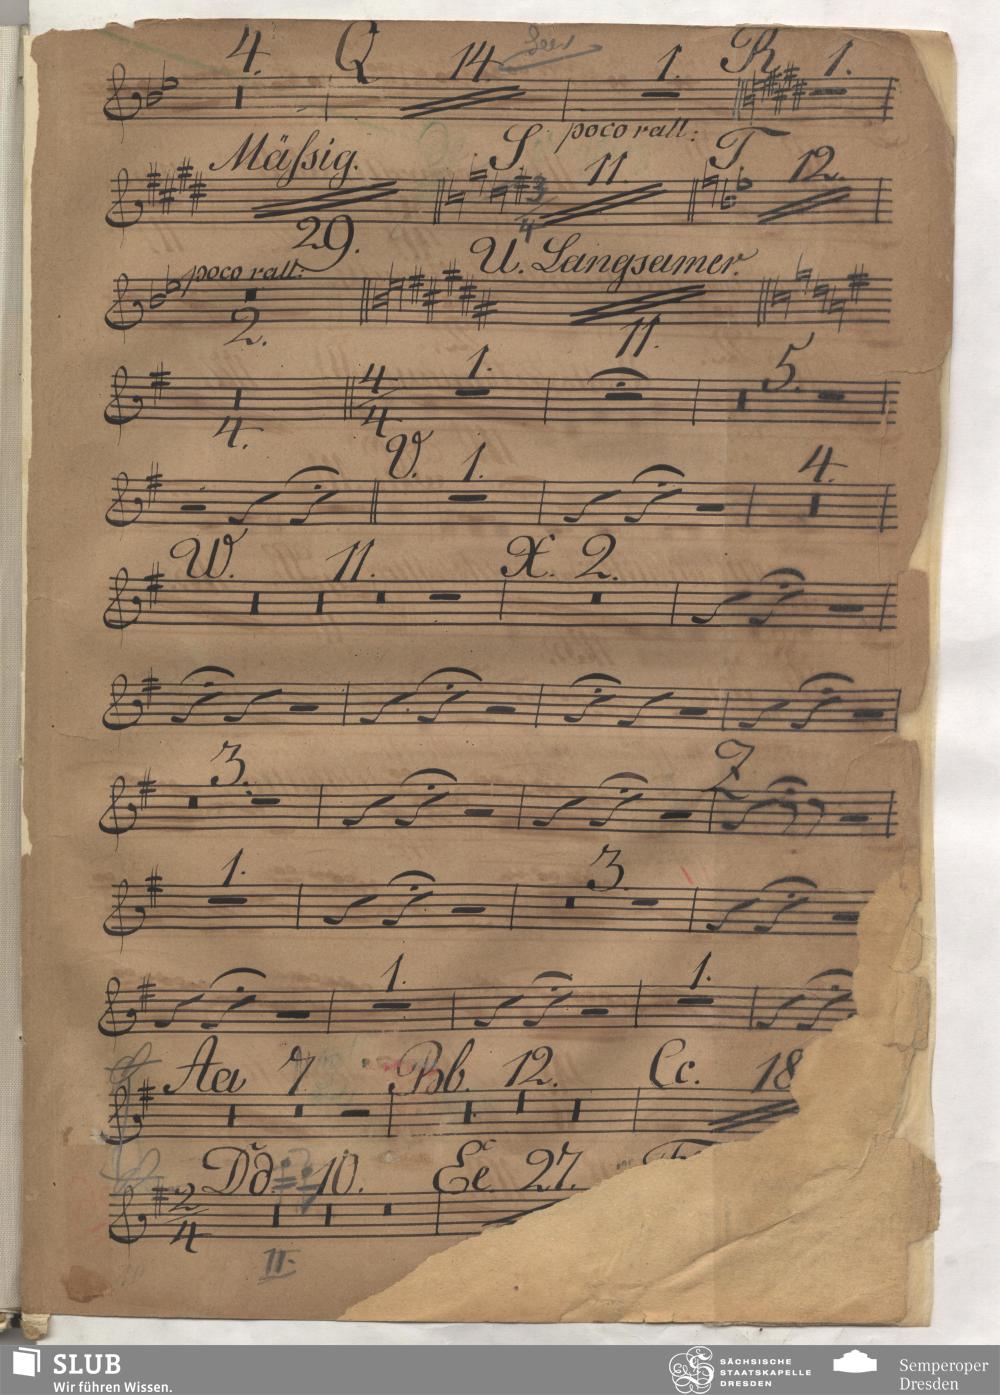 4. Q 14 1. R 1.
poco rall:
Mäßig. S 11 T. 12.
29. 3/4
poco rall: U. Langsamer.
2. 11.
4. 4/4 1. 5.
V. 1. 4.
W. 11. X. 2.
3. Z
1. 3.
1. 1.
Aa 7 Bb. 12. Cc. 18
Dd. 10. Ee. 27.
2/4
II.
SLUB
Wir führen Wissen.
SÄCHSISCHE
STAATSKAPELLE
DRESDEN
Semperoper
Dresden